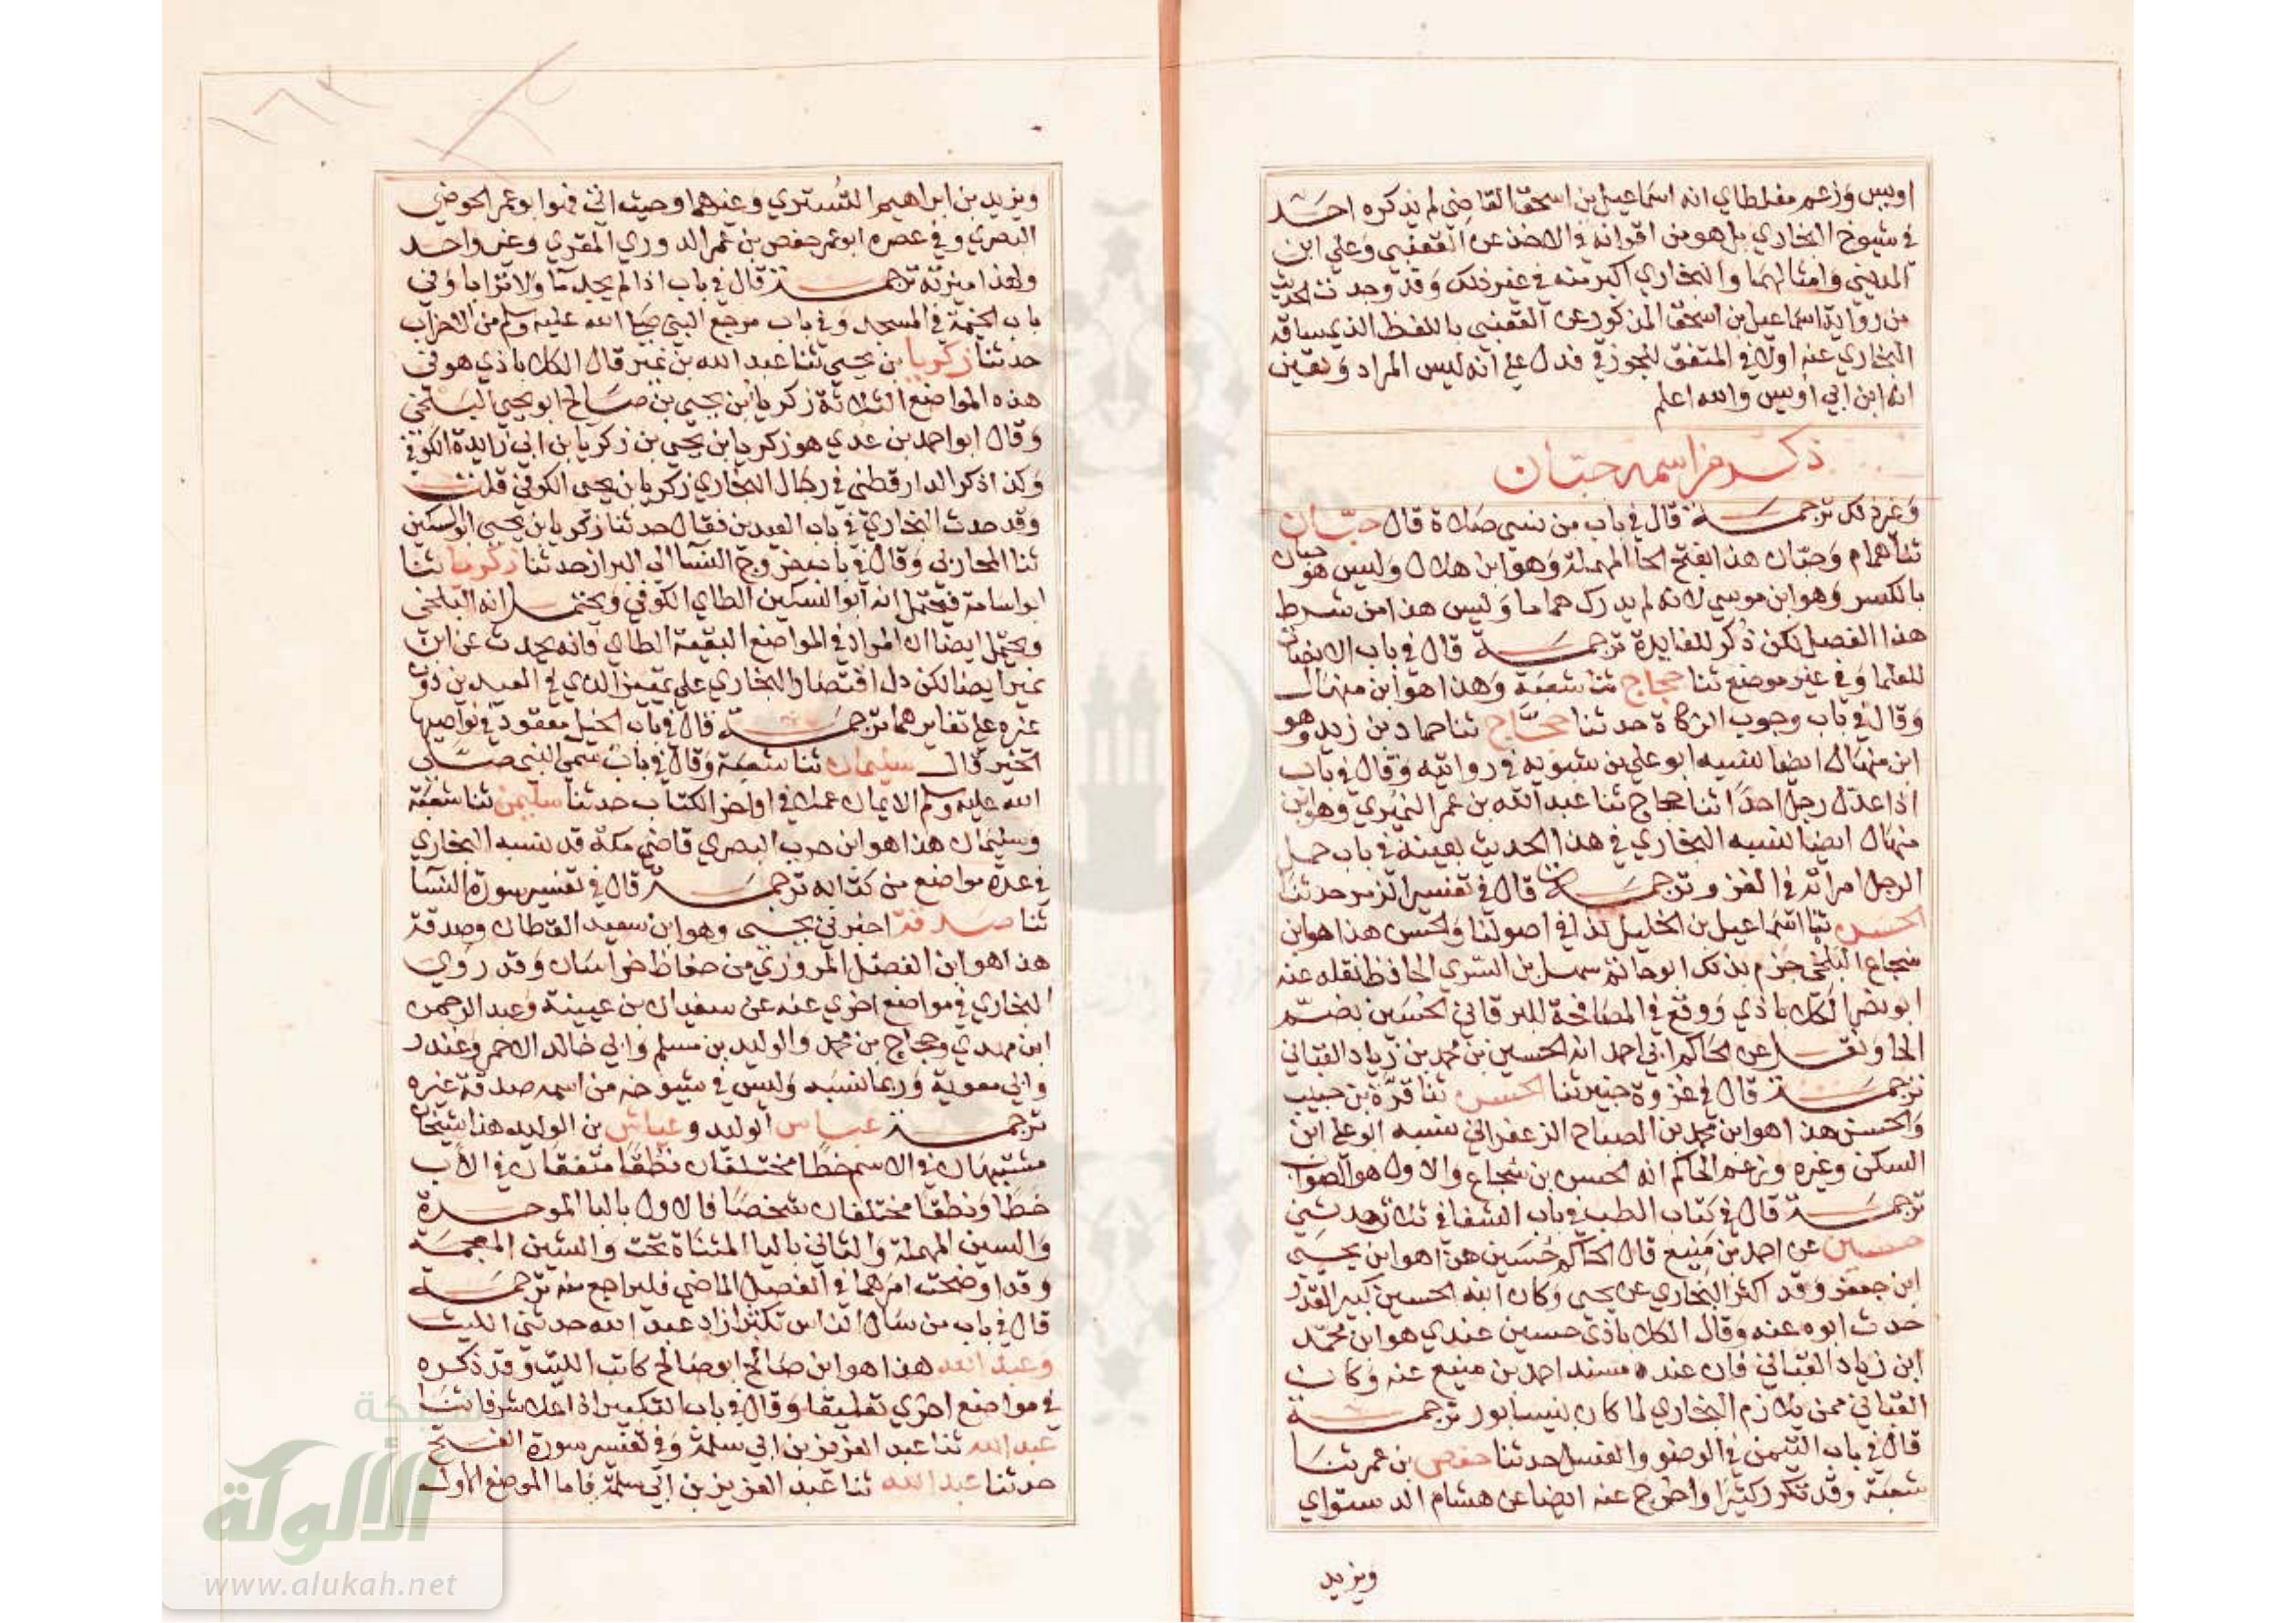 اويس وزعم مغلطاي انه اسماعيل بن اسحق القاضي لم يذكره احد
في شيوخ البخاري بل هو من اقرانه في الاخذ عن القعنبي وعلي ابن
المديني وامثالهما والبخاري اكبر منه في غير ذلك وقد وجدت الحديث
من رواية اسماعيل بن اسحق المذكور عن القعنبي باللفظ الذي ساقه
البخاري عنه اولا في المتفق لنجوزقي فدل على انه ليس المراد وتعين
انه ابن ابي اويس والله اعلم
ذكر من اسمه حبان
وغير ذلك ترجمة قال في باب من نسي صلاة قال حبّان
ثنا همام وحبّان هذا بفتح الحا المهملة وهو ابن هلال وليس هو حبان
بالكسر وهو ابن موسي لانه لم يدرك هماما وليس هذا من شرط
هذا الفصل لكن ذكر للفايدة ترجمة قال في باب الانصات
للعلما وفي غير موضع ثنا حجاج ثنا شعبة وهذا هو ابن منهال
وقال في باب وجوب الزكاة حدثنا حجّاج ثنا حماد بن زيد وهو
ابن منهال ايضا لنسبه ابو علي بن شبويه في روايته وقال في باب
اذا عدل رجل احدًا ثنا حجاج ثنا عبد الله بن عمر النميري وهو ابن
منهال ايضا لنسبه البخاري في هذا الحديث بعينه في باب حمل
الرجل امراته في الغزو ترجمة قال في تفسير الزمر حدثنا
الحسن ثنا اسماعيل بن الخليل كذا في اصولنا والحسن هذا هو ابن
شجاع البلخي جزم بذلك ابو حاتم سهل بن السري الحافظ نقله عنه
ابو نصر الكلاباذي ووقع في المصافحة للبرقاني الحسين بضم
الحا ونقل عن الحاكم ابي احمد انه الحسين بن محمد بن زياد القباني
ترجمة قال في غزوة خيبر ثنا الحسن ثنا قرّة بن حبيب
والحسن هذا هو ابن محمد بن الصباح الزعفراني نسبه ابو علي ابن
السكن وغيره وزعم الحاكم انه الحسن بن شجاع والاول هو الصواب
ترجمة قال في كتاب الطب في باب الشفا في ثلاث حدثني
حسين عن احمد بن منيع قال الحاكم حُسَين هذا هو ابن يحيى
ابن جعفر وقد اكثر البخاري عن يحيى وكان ابنه الحسين كبير القدر
حدث ابوه عنه وقال الكلاباذي حسين عندي هو ابن محمد
ابن زياد القباني فان عنده مسند احمد بن منيع عنه وكان
القباني ممن يلازم البخاري لما كان بنيسابور ترجمة
قال في باب التيمن في الوضو والغسل حدثنا حفص بن عمر ثنا
شعبة وقد تكرر كثيرا واخرج عنه ايضا عن هشام الدستواي
ويزيد
ويزيد بن ابراهيم التُستري وغيرهما وحيث اتى فهو ابو عمر الحوضي
البصري وفي عصره ابو عمر حفص بن عمر الدوري المقري وغير واحد
ولهذا ميزته ترجمة قال في باب اذا لم يجد ما ولا ترابا وفي
باب الخيمة في المسجد وفي باب مرجع النبي صلى الله عليه وسلم من الاحزاب
حدثنا زكريا بن يحيى ثنا عبد الله بن نمير قال الكلاباذي هو في
هذه المواضع الثلاثة زكريا بن يحيى بن صالح ابو يحيى البلخي
وقال ابو احمد بن عدي هو زكريا بن يحيى بن زكريا بن ابي زايدة الكوفي
وكذا ذكر الدارقطني في رجال البخاري زكريا بن يحيى الكوفي قلت
وقد حدث البخاري في باب العيدين فقال حدثنا زكريا بن يحيى ابو السكين
ثنا المحاربي وقال في باب خروج النسا الى البراز حدثنا زكريا ثنا
ابو اسامة فيحتمل انه ابو السكين الطاي الكوفي ويحتمل انه البلخي
ويحتمل ايضا ان المراد في المواضع البقية الطاي فانه يحدث عن ابن
نمير ايضا لكن دل اقتصار البخاري علي تمييز الذي في العيدين دون
غيره على تغايرهما ترجمة قال في باب الخيل معقود في نواصيها
الخير قال سليمان ثنا شعبة وقال في باب سمى النبي صلى
الله عليه وسلم الايمان عملا في اواخر الكتاب حدثنا سليمن ثنا شعبة
وسليمان هذا هو ابن حرب البصري قاضي مكة قد نسبه البخاري
في عدة مواضع من كتابه ترجمة قال في تفسير سورة النسا
ثنا صدقة اخبرني يحيى وهو ابن سعيد القطان وصدقة
هذا هو ابن الفضل المروزي من حفاظ خراسان وقد روى
البخاري في مواضع اخرى عنه عن سفيان بن عيينة وعبد الرحمن
ابن مهدي وحجاج بن محمد والوليد بن مسلم وابي خالد الاحمر وغندر
وابي معوية وربما نسبه وليس في شيوخه من اسمه صدقة غيره
ترجمة عباس الوليد وعياش بن الوليد هذا شيخان
مشتبهان في الاسم خطا مختلفان نطقا متفقان في الاب
خطا ونطقا مختلفان شخصا فالاول بالبا الموحدة
والسين المهملة والثاني باليا المثناة تحت والشين المعجمة
وقد اوضحت امرهما في الفصل الماضي فليراجع منه ترجمة
قال في باب من سال الناس تكثرا زاد عبد الله حدثني الليث
وعبد الله هذا هو ابن صالح ابو صالح كاتب الليث وقد ذكره
في مواضع اخرى تعليقا وقال في باب التكبير اذا علا شرفا ثنا
عبد الله ثنا عبد العزيز بن ابي سلمة وفي تفسير سورة الفتح
حدثنا عبد الله ثنا عبد العزيز بن ابي سلمة فاما الموضع الاول
شبكة
الألوكة
www.alukah.net